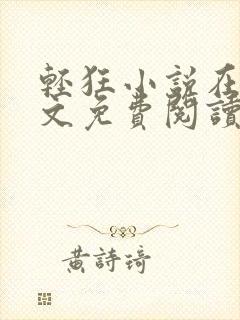 輕狂小說在
文免費閱讀
黃詩琦